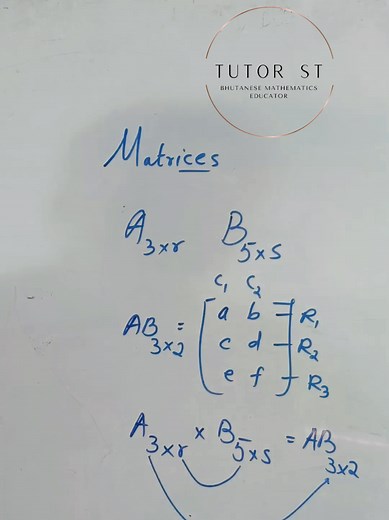 TUTOR ST
BHUTANESE MATHEMATICS
EDUCATOR
Matrices
A3×r B5×s
C1 C2
AB3×2 = [a b] R1
[c d] R2
[e f] R3
A3×r × B5×s = AB3×2